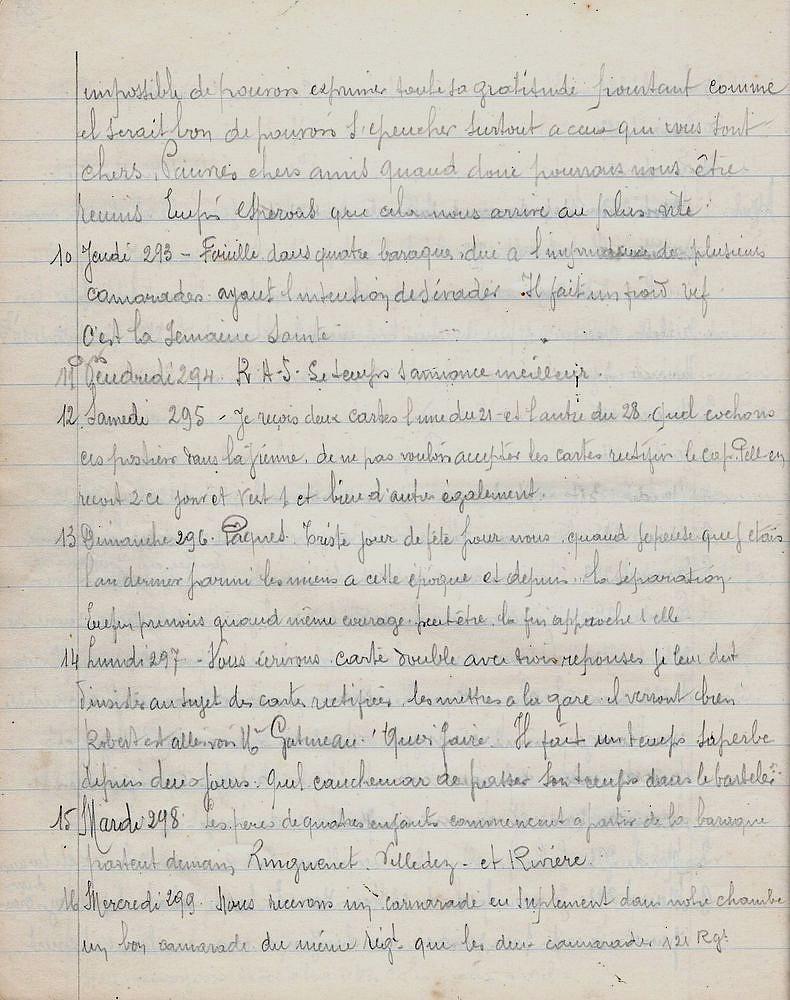 impossible de pouvoir exprimer toute sa gratitude pourtant comme
il serait bon de pouvoir s'epencher surtout a ceux qui vous sont
chers. Pauvres chers amis quand donc pourrons nous être
reunis Enfin esperons que cela nous arrive au plus vite.
10 Jeudi 293 - Fouille dans quatre baraques due a l'imprudence de plusieurs
camarades ayant l'intention de s'évader Il fait un froid vif
C'est la Semaine Sainte
11 Vendredi 294. R.A.S. Le temps s'annonce meilleur.
12 Samedi 295 - Je reçois deux cartes l'une du 21 et l'autre du 28. Quel cochons
ces postiers dans la Vienne, de ne pas vouloir accepter les cartes rectifier le cap.
recoit 2 ce jour et 1 et bien d'autres également.
13 Dimanche 296. Paques. Triste jour de fête pour nous, quand je pense que j'etais
l'an dernier parmi les miens a cette époque et depuis.. la séparation
Enfin prenons quand même courage peut être la fin approche t'elle
14 Lundi 297 - Nous écrivons carte double avec trois reponses je leur dit
d'insister au sujet des cartes rectifiées, les mettres a la gare il verront bien
Robert est aller voir Mr Gatineau. Quoi faire. Il fait un temps superbe
depuis deux jours. Quel cauchemar de passer son temps dans le
15 Mardi 298 Les peres de quatres enfants commencent a partir de la baraque
partent demain, Ringuenet, Villedez - et Rivière.
16 Mercredi 299. Nous recevons un camarade en suplement dans notre chambre
un bon camarade du même regt que les deux camarades 121 Rgt